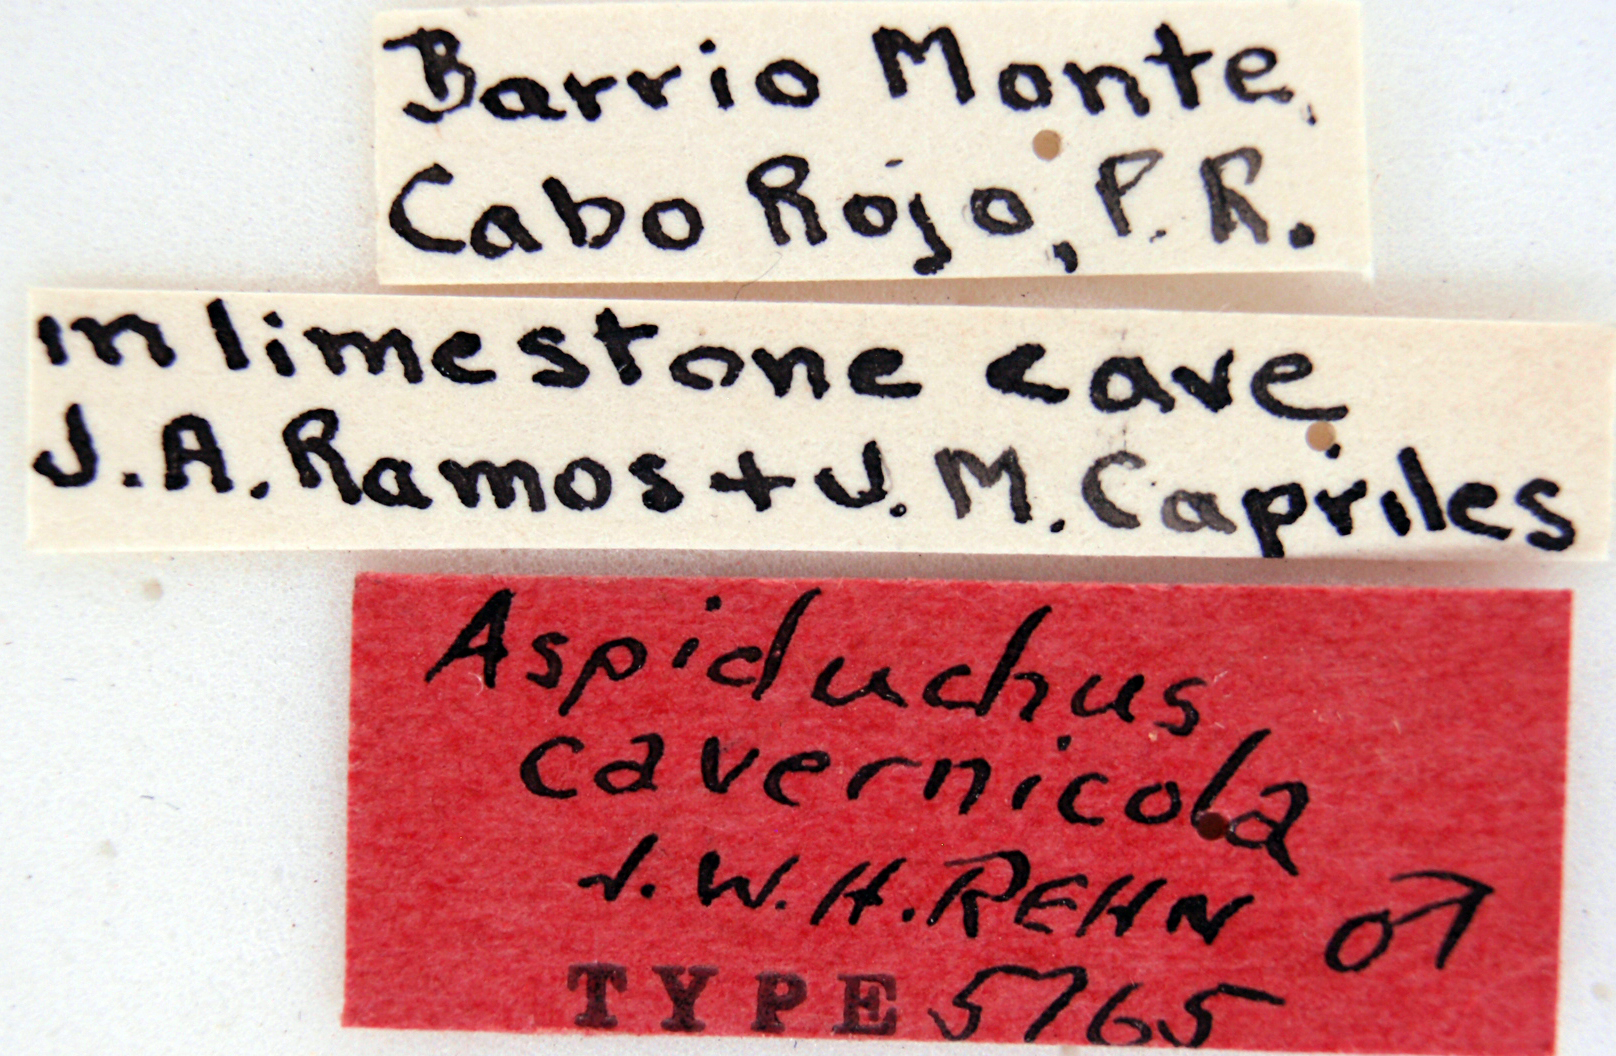 Barrio Monte,
Cabo Rojo, P.R.
in limestone cave
J.A. Ramos + J.M. Capriles
Aspiduchus
cavernicola
J.W.H. REHN ♂
TYPE 5765